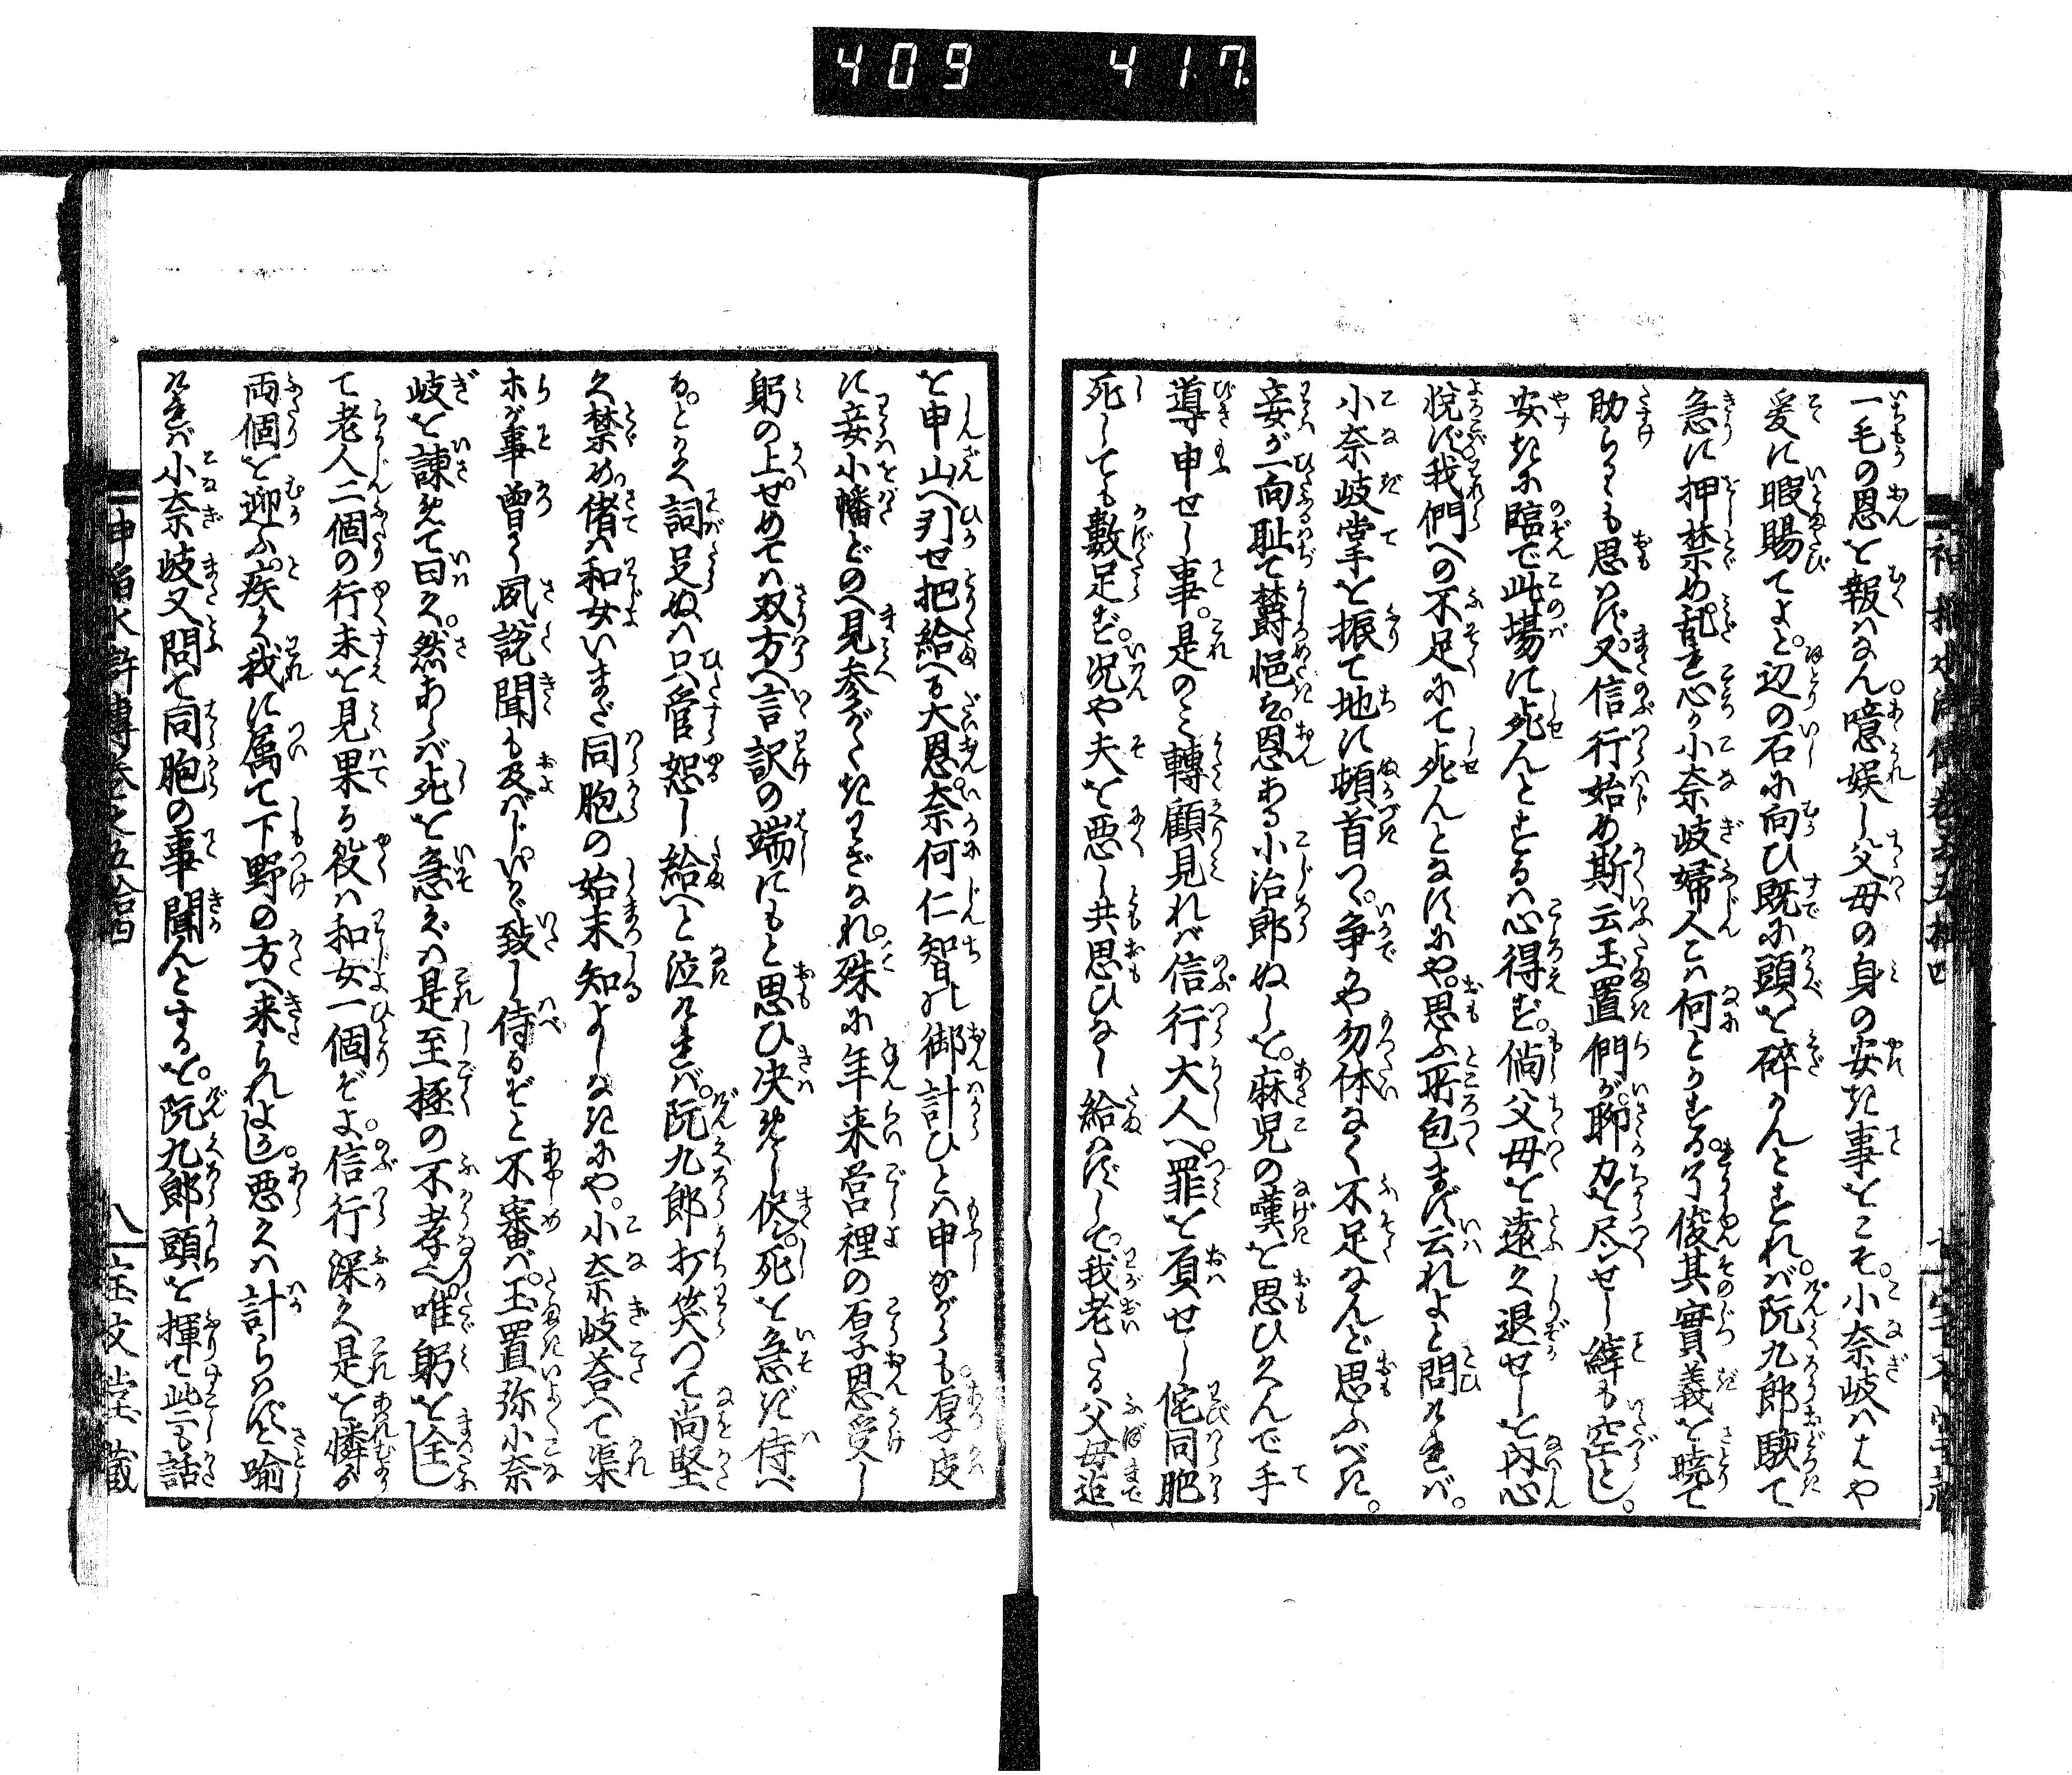 409 417
一毛の恩を報はなん。噫娯し父母の身の安き事をこそ。小奈岐はや
爰に暇賜てよと。辺の石に向ひ既に頭を碎かんとすれば。阮九郎駭て
急に押禁め。乱れ心か小奈岐婦人こは何とかする。了俊其實義を暁て
助らるゝも思はず。又信行始め斯云玉置們が。聊力を尽せし縡も空しと。
安きに臨で此場に死んとするは心得ず。倘父母を遠く退せしを内心
悦ず。我們への不足にて死んとなすにや。思ふ所包まず云れよと問ければ。
小奈岐掌を振て地に頓首つ。争かや勿体なく不足なんど思ふべき。
妾が一向耻て欝悒は。恩ある小治郎ぬしを。麻児の嘆を思ひくんで手
導申せし事。是のみ轉顧見れば信行大人へ。罪を負せし侘同胞
死しても數足ず。况や夫を悪し共思ひなし給はずして。我老たる父母迄
を申山へ引せ把給へる大恩。奈何仁智の御計ひとは申ながらも。厚皮
に妾小幡どのへ見参がたきわざなれ。殊に年来営裡の厚恩受し
躬の上。せめては双方へ言訳の端にもと思ひ决めし侭。死を急ぎ侍べ
る。とかく詞足ぬは只管恕し給へと泣ければ。阮九郎打笑つて尚堅
く禁め。偖は和女いまだ同胞の始末知よしなきにや。小奈岐荅へて渠
ホが事曽て夙說聞も及ばじ。いかゞ致し侍るぞと不審ば。玉置弥小奈
岐を諫めて曰く。然あらば死を急ぐは是至極の不孝へ。唯躬を全し
て老人二個の行末を見果る役は和女一個ぞよ。信行深く是を憐み
両個を迎ふ。疾く我に属て下野の方へ来られよかし。悪くは計らはずと喻
ければ。小奈岐又問て同胞の事聞んとするを。阮九郎頭を揮て此も話
八 宝文堂蔵